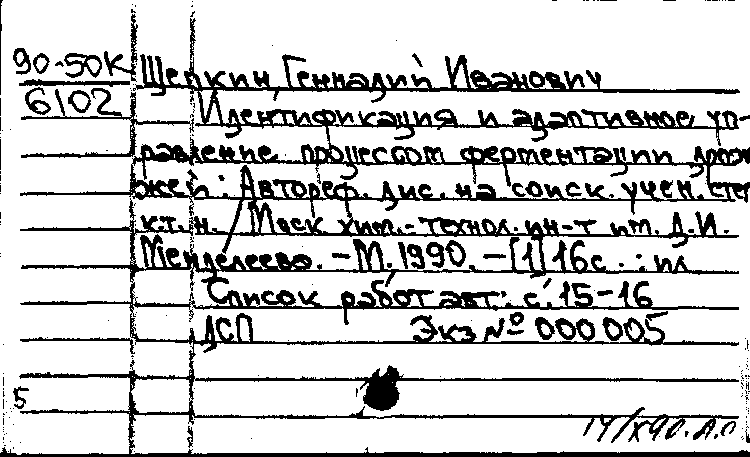 90-50К Щепкин, Геннадий Иванович
6102 Идентификация и адаптивное уп-
равление процессом ферментации дрож
жей : Автореф. дис. на соиск. учен. степ
к.т.н. / Моск хим.-технол. ин-т им. Д.И.
Менделеева. - М. 1990. - [1] 16с. : ил
Список работ авт.: с. 15-16
ДСП Экз № 000005
5
14/X90.